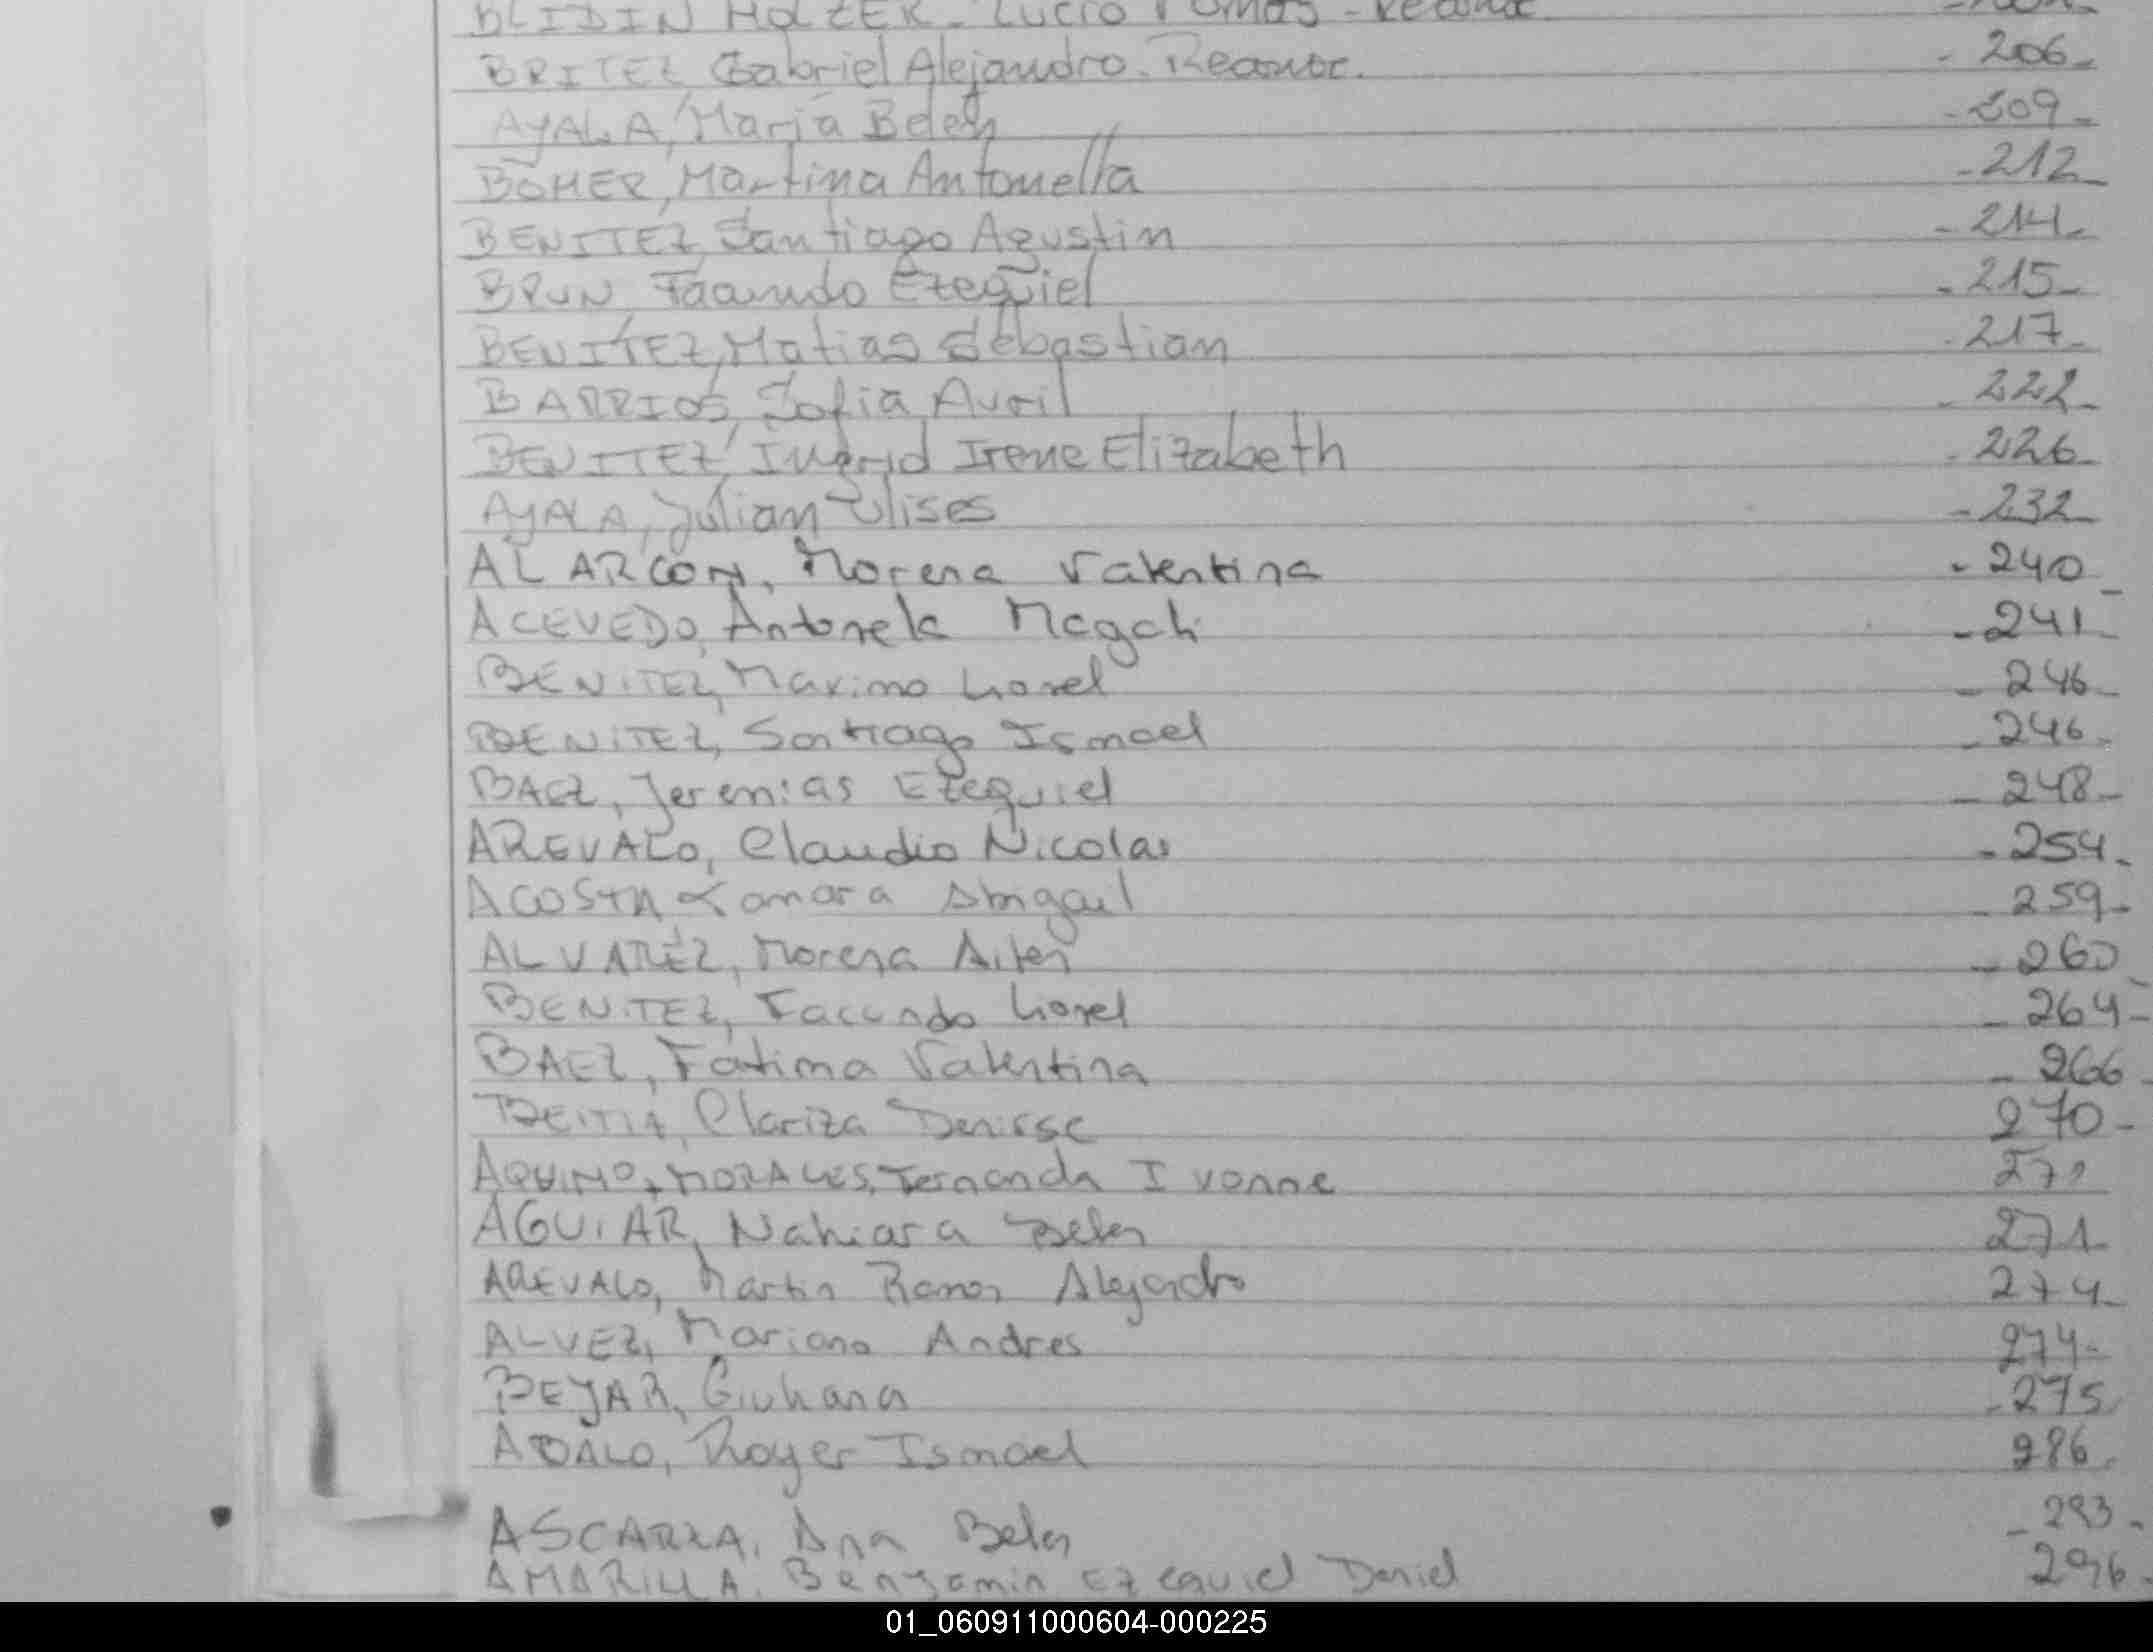 BLIDIN HOLZER - Lucio Tomas - Reconoc.
BRITEZ, Gabriel Alejandro. Reconoc. - 206 -
AYALA, María Belen - 209 -
BOHER, Martina Antonella - 212 -
BENITEZ, Santiago Agustin - 214 -
BRUN, Facundo Ezequiel - 215 -
BENÍTEZ, Matias Sebastian - 217 -
BARRIOS, Sofia Avril - 222 -
BENITEZ, Ingrid Irene Elizabeth - 226 -
AYALA, Julian Ulises - 232 -
ALARCON, Morena Valentina - 240 -
ACEVEDO, Antonela Magali - 241 -
BENITEZ, Maximo Lionel - 246 -
BENITEZ, Santiago Ismael - 246 -
BAEZ, Jeremias Ezequiel - 248 -
AREVALO, Claudio Nicolas - 254 -
ACOSTA Xamara Abigail - 259 -
ALVAREZ, Morena Ailen - 260 -
BENITEZ, Facundo Lionel - 264 -
BAEZ, Fatima Valentina - 266 -
BEITIA, Clariza Denisse 270 -
AQUINO, MORALES, Fernanda Ivonne 271
AGUIAR, Nahiara Belen 271 -
AREVALO, Martin Ramon Alejandro 274 -
ALVEZ, Mariano Andres 274 -
BEJAR, Giuliana - 275
ADALO, Royer Ismael 286 -
ASCARZA, Ana Belen - 293 -
AMARILLA, Benjamin Ezequiel Daniel 296 -
01_060911000604-000225